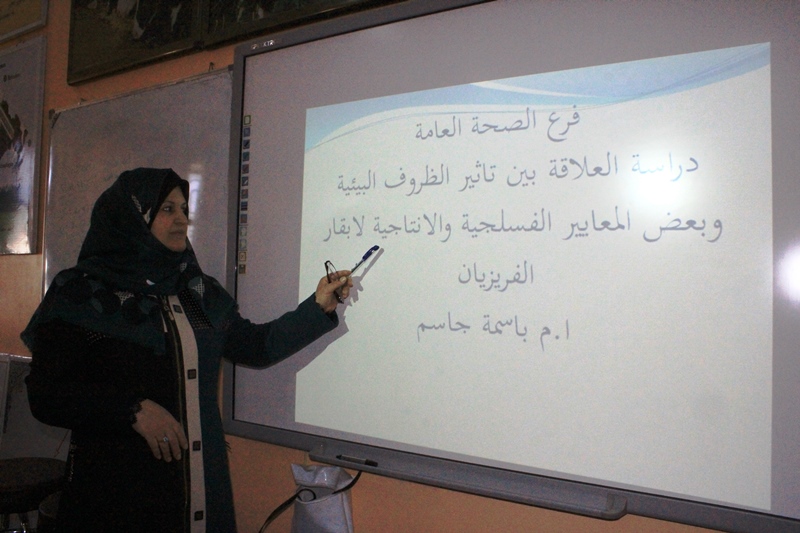 فرع الصحة العامة
دراسة العلاقة بين تاثير الظروف البيئية
وبعض المعايير الفسلجية والانتاجية لابقار
الفريزيان
ا.م باسمة جاسم